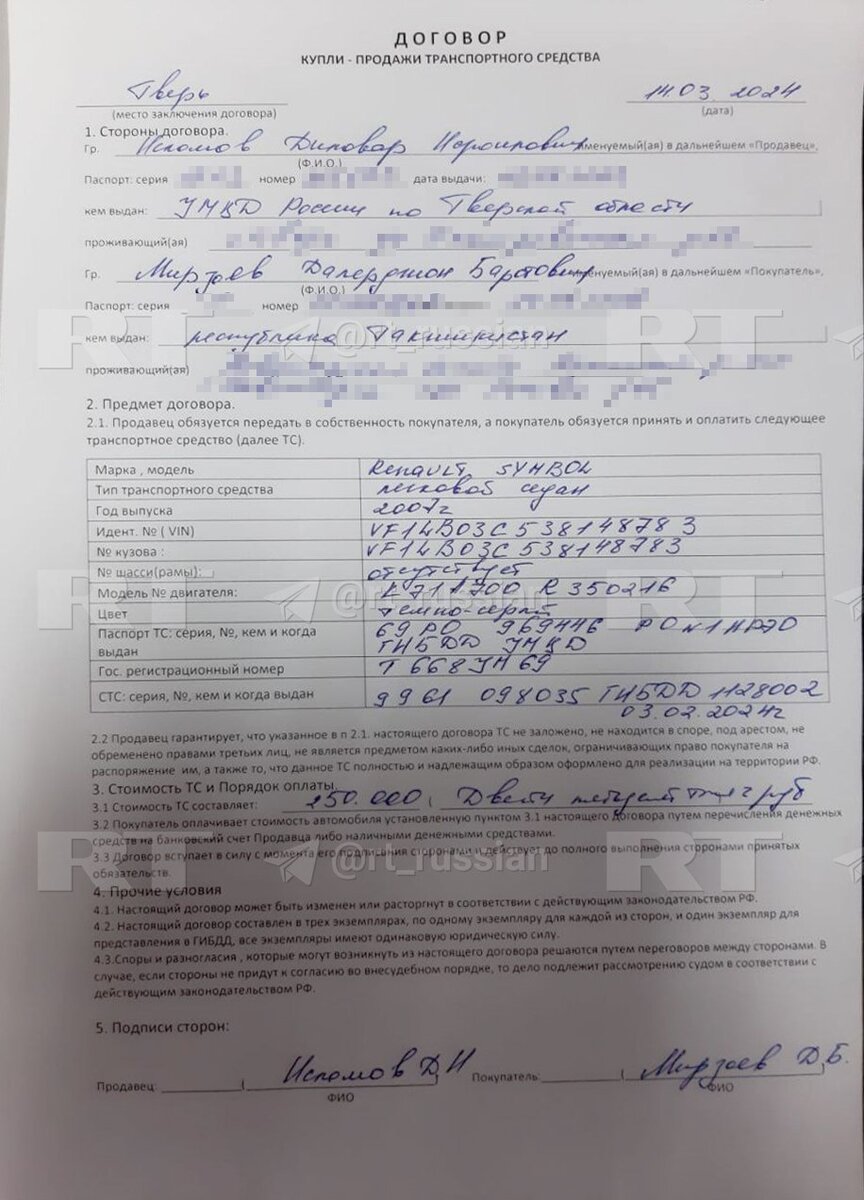 ДОГОВОР
КУПЛИ - ПРОДАЖИ ТРАНСПОРТНОГО СРЕДСТВА
Тверь 14.03 2024
(место заключения договора) (дата)
1. Стороны договора.
Гр. Исломов Диловар Исроилович именуемый(ая) в дальнейшем «Продавец»,
(Ф.И.О.)
Паспорт: серия номер дата выдачи:
кем выдан: УМВД России по Тверской области
проживающий(ая)
Гр. Мирзоев Далерджон Баротович именуемый(ая) в дальнейшем «Покупатель»,
(Ф.И.О.)
Паспорт: серия номер
кем выдан: республика Таджикистан
проживающий(ая)
RT @rt_russian RT
2. Предмет договора.
2.1. Продавец обязуется передать в собственность покупателя, а покупатель обязуется принять и оплатить следующее
транспортное средство (далее ТС).
Марка , модель Renault SYMBOL
Тип транспортного средства легковой седан
Год выпуска 2007г
Идент. № ( VIN) VF1LB03C538148783
№ кузова : VF1LB03C538148783
№ шасси(рамы): отсутствует
Модель № двигателя: K711700 R350216
Цвет темно-серый
Паспорт ТС: серия, №, кем и когда 69РО 969446
выдан ГИБДД УМВД
Гос. регистрационный номер Т 668УМ69
СТС: серия, №, кем и когда выдан 9961 098035 ГИБДД 1128002
03.02.2024г
RT @rt_russian RT
2.2 Продавец гарантирует, что указанное в п 2.1. настоящего договора ТС не заложено, не находится в споре, под арестом, не
обременено правами третьих лиц, не является предметом каких-либо иных сделок, ограничивающих право покупателя на
распоряжение им, а также то, что данное ТС полностью и надлежащим образом оформлено для реализации на территории РФ.
3. Стоимость ТС и Порядок оплаты.
3.1 Стоимость ТС составляет: 250.000 ( Двести пятьдесят тысяч руб
3.2 Покупатель оплачивает стоимость автомобиля установленную пунктом 3.1 настоящего договора путем перечисления денежных
средств на банковский счет Продавца либо наличными денежными средствами.
3.3 Договор вступает в силу с момента его подписания сторонами и действует до полного выполнения сторонами принятых
обязательств.
RT @rt_russian RT
4. Прочие условия
4.1. Настоящий договор может быть изменен или расторгнут в соответствии с действующим законодательством РФ.
4.2. Настоящий договор составлен в трех экземплярах, по одному экземпляру для каждой из сторон, и один экземпляр для
представления в ГИБДД, все экземпляры имеют одинаковую юридическую силу.
4.3.Споры и разногласия , которые могут возникнуть из настоящего договора решаются путем переговоров между сторонами. В
случае, если стороны не придут к согласию во внесудебном порядке, то дело подлежит рассмотрению судом в соответствии с
действующим законодательством РФ.
5. Подписи сторон:
Продавец: ( Исломов Д И ) Покупатель: ( Мирзоев Д Б. )
ФИО ФИО